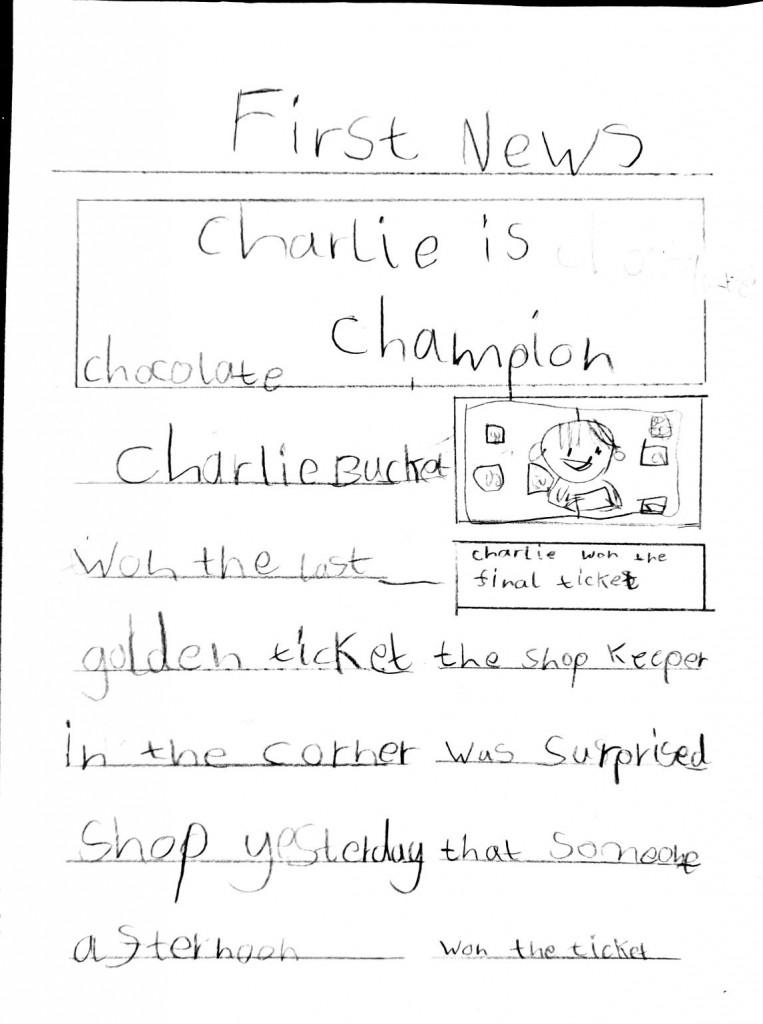 First News
Charlie is
chocolate champion
Charlie Bucket
won the last
golden ticket
in the corner
shop yesterday
afternoon
charlie won the
final ticket
the shop keeper
was surprised
that someone
won the ticket